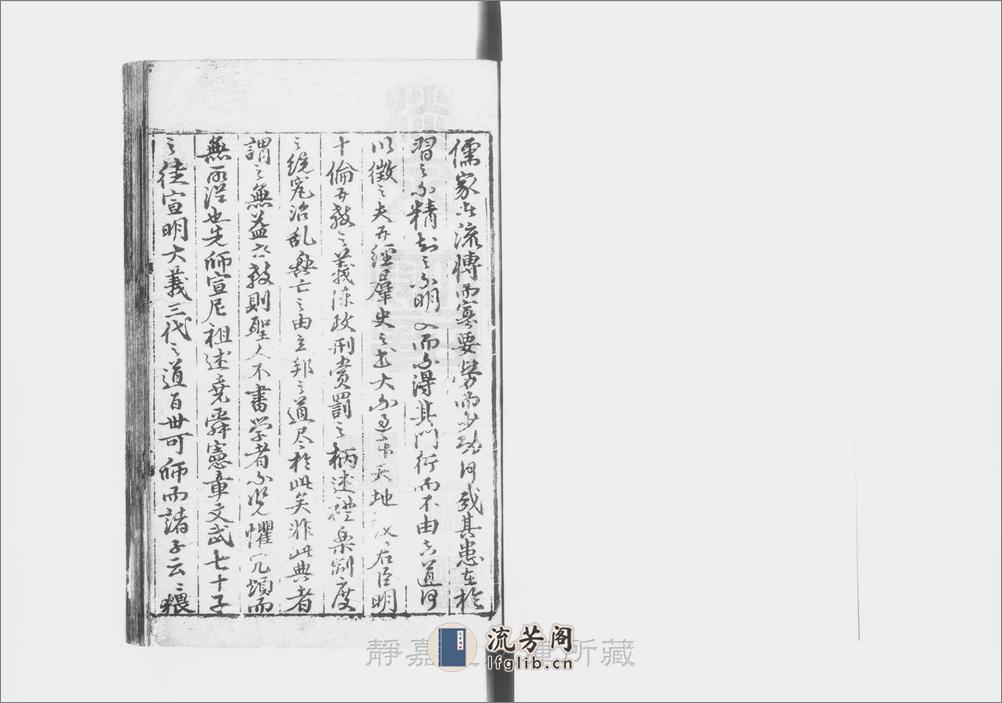 儒家者流博而寡要勞而少功何哉其患在於
習之不精知之不明入而不得其門行而不由其道何
以徵之夫五經羣史之書大不過本天地設君臣明
十倫五教之義陳政刑賞罰之柄述禮樂制度
之統究治乱興亡之由立邦之道尽於此矣非此典者
謂之無益世教則聖人不書学者不覽懼冗煩而
無所從也先師宣尼祖述堯舜憲章文武七十子
之徒宣明大義三代之道百世可師而諸子云〻猥
靜嘉
所藏
流芳阁
lfglib.cn